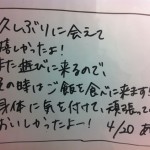 久しぶりに会えて
嬉しかったよ!
また遊びに来るので、
の時はご飯を食べに来ます!
身体に気を付けて、頑張って
おいしかったよー! 4/20 あ